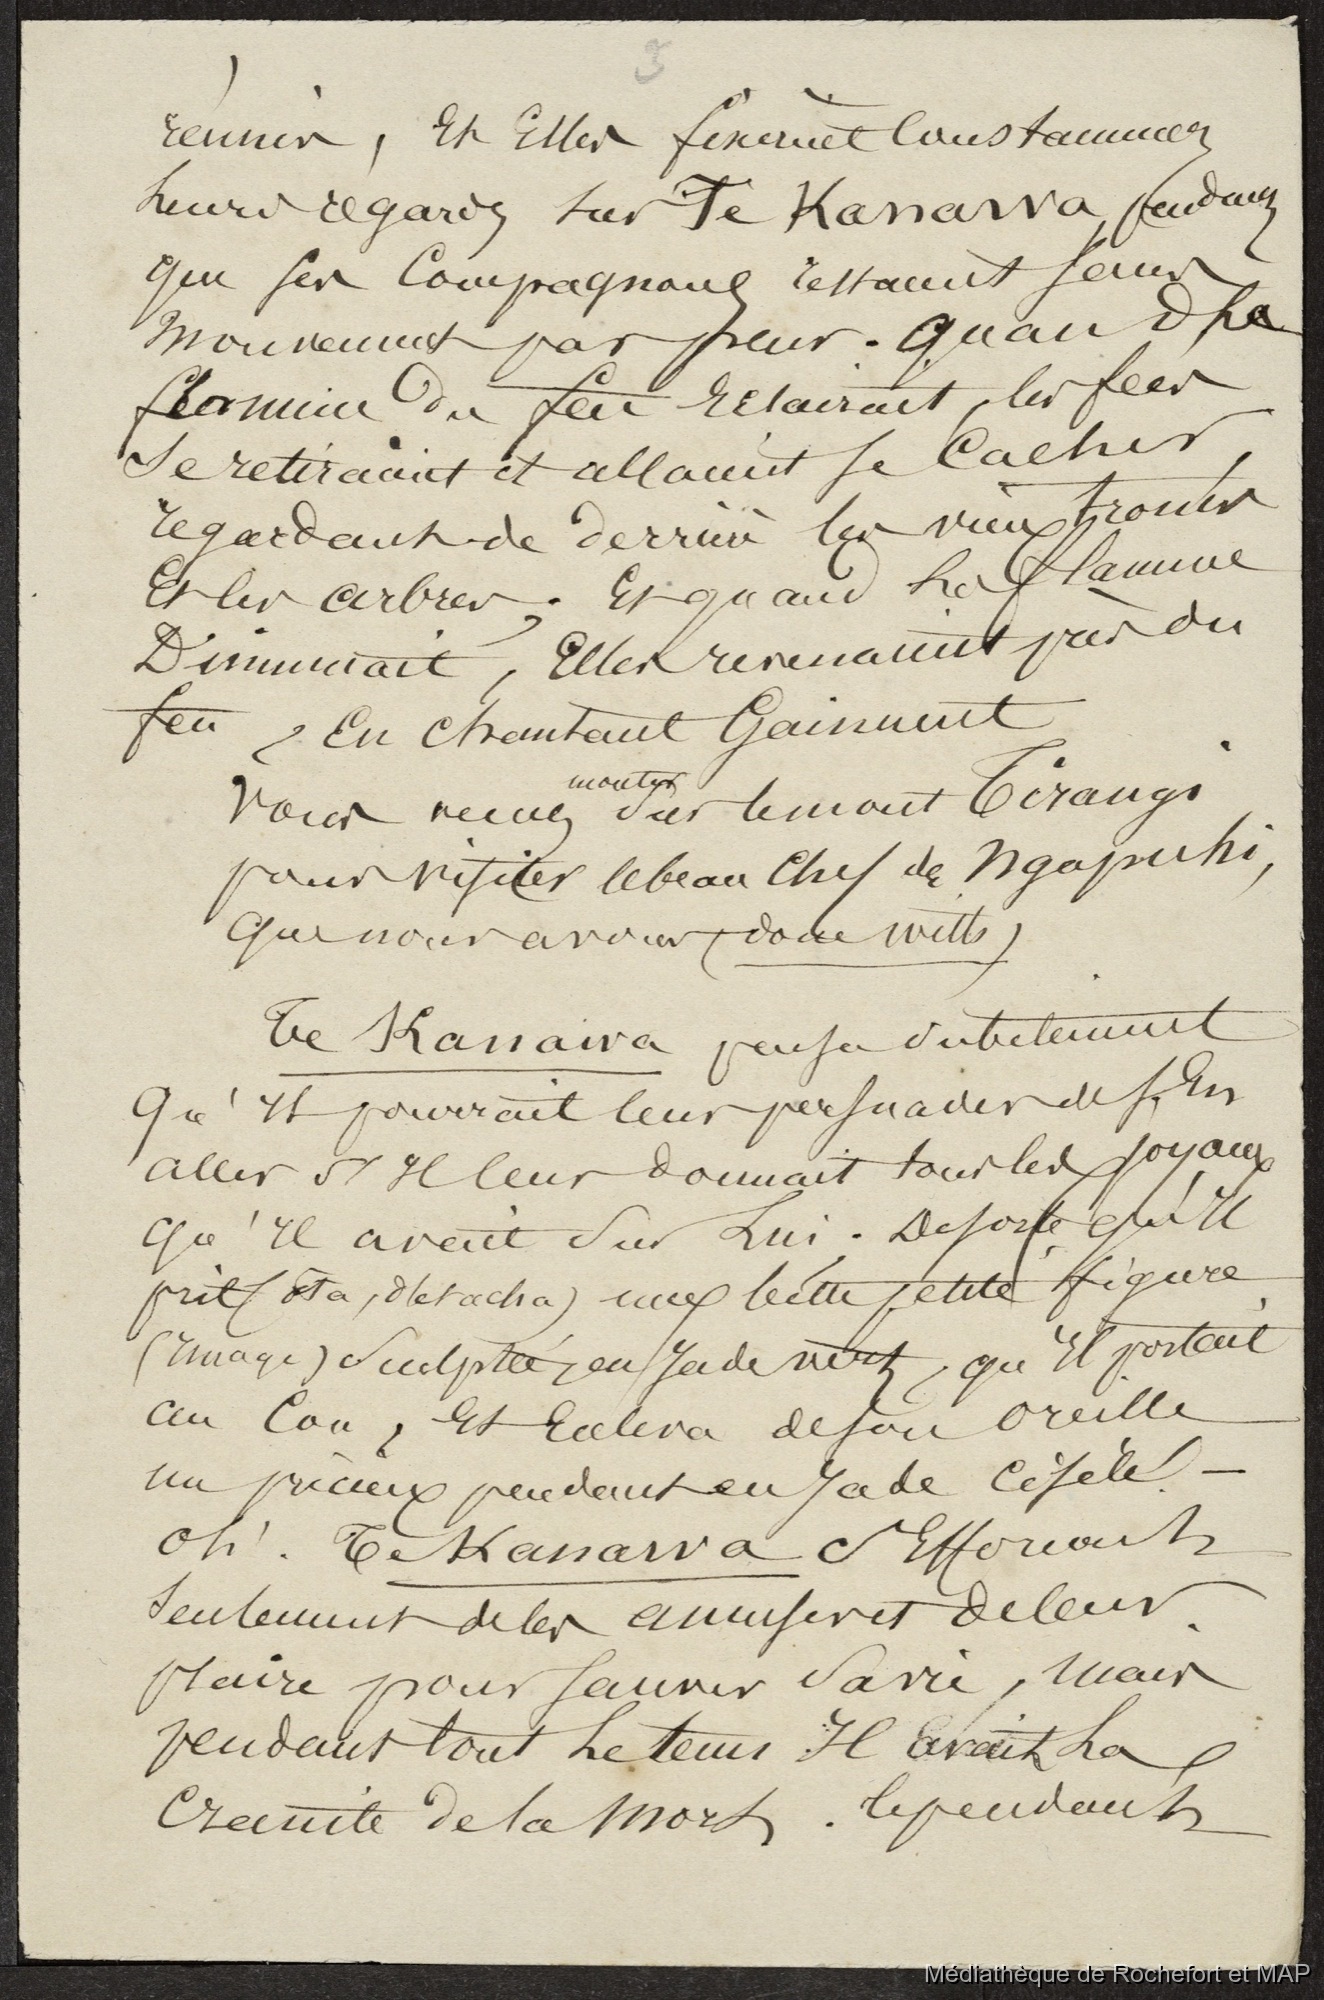 3
réunir, Et Elles fixèrent Constamment
leurs régards sur Te Kanawa, pendant
que ses Compagnons restaient sans
Mouvement par peur. Quand la
flamme du feu Eclairait, les fées
Se retiraient et allaient se Cacher,
regardant de derrière les vieux troncs
Et les arbres; Et quand La flamme
Diminuait, Elles revenaient près du
feu, En chantant Gaiement
Vous venez monter sur le mont Tirangi
pour visiter le beau Chef de Ngapuhi,
Que nous avons (done with)
Te Kanawa pensa subitement
Qu'Il pourrait leur persuader de s'En
aller s'Il leur donnait tous les joyaux
qu'Il avait Sur Lui. De sorte qu'Il
prit (ôta, détacha) une belle petite figure
(Image) Sculptée, en Jade vert, qu'Il portait
au Cou, Et Enleva de son Oreille
un précieux pendant en Jade Ciselé –
Oh! Te Kanawa S'Efforçait
Seulement de les amuser et de leur
plaire pour sauver Sa vie, Mais
pendant tout Le tems Il avait La
Crainte de la Mort. Cependant
Médiathèque de Rochefort et MAP